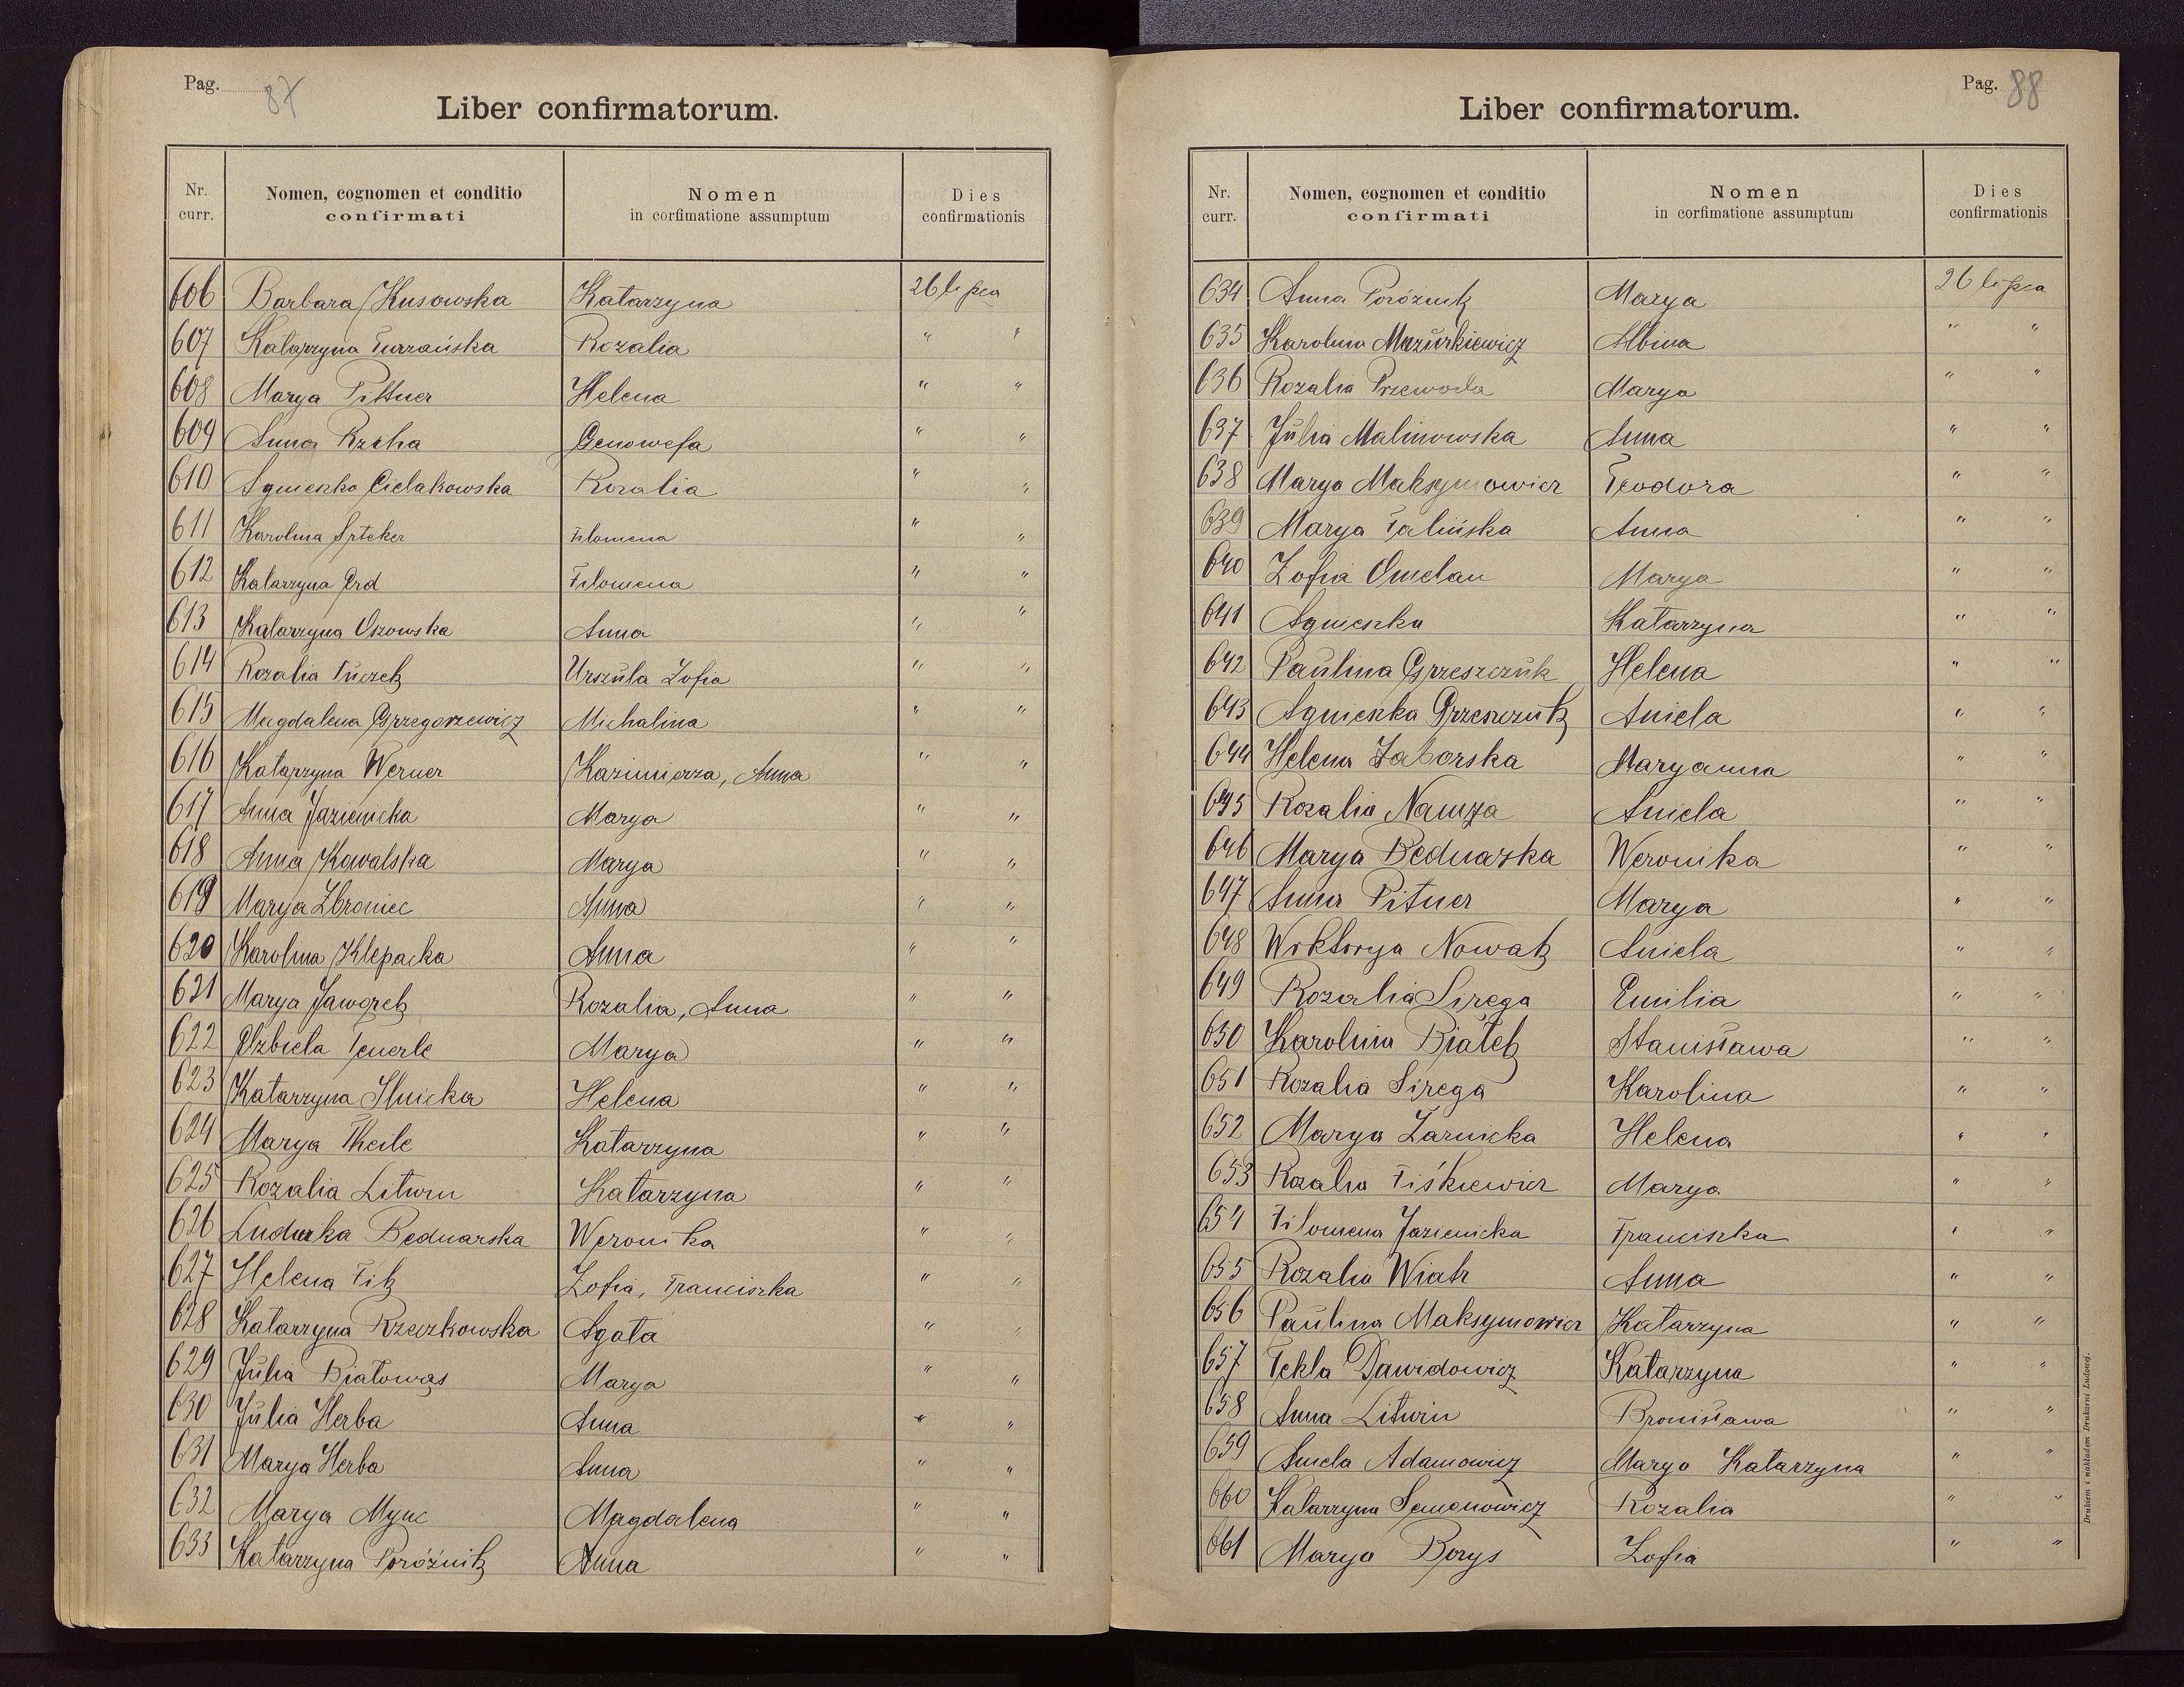 Pag. 87
Liber confirmatorum.
Nr. curr. Nomen, cognomen et conditio confirmati Nomen in corfimatione assumptum Dies confirmationis
606 Barbara Kusowska Katarzyna 26 lipca
607 Katarzyna Turzańska Rozalia " "
608 Marya Pittner Helena " "
609 Anna Rzeha Genowefa " "
610 Agnieszka Cielakowska Rozalia " "
611 Karolina Filomena " "
612 Katarzyna Erd Filomena " "
613 Katarzyna Oszowska Anna " "
614 Rozalia Tuczek Urszula Zofia " "
615 Magdalena Grzegorzewicz Michalina " "
616 Katarzyna Werner Kazimierza, Anna " "
617 Anna Jazienicka Marya " "
618 Anna Kowalska Marya " "
619 Marya Zbroniec Anna " "
620 Karolina Klepacka Anna " "
621 Marya Jaworek Rozalia, Anna " "
622 Elzbieta Teuerle Marya " "
623 Katarzyna Słnicka Helena " "
624 Marya Theile Katarzyna " "
625 Rozalia Litwin Katarzyna " "
626 Ludwika Bednarska Weronika " "
627 Helena Fik Zofia, Franciszka " "
628 Katarzyna Rzeczkowska Agata " "
629 Julia Białowąs Marya " "
630 Julia Herba Anna " "
631 Marya Herba Anna " "
632 Marya Mync Magdalena " "
633 Katarzyna Poróżnik Anna " "
Pag. 88
Liber confirmatorum.
Nr. curr. Nomen, cognomen et conditio confirmati Nomen in corfimatione assumptum Dies confirmationis
634 Anna Poróżnik Marya 26 lipca
635 Karolina Mazurkiewicz Albina " "
636 Rozalia Przewoda Marya " "
637 Julia Malinowska Anna " "
638 Marya Maksymowicz Teodora " "
639 Marya Falińska Anna " "
640 Zofia Omelan Marya " "
641 Agnieszka Katarzyna " "
642 Paulina Grzeszczuk Helena " "
643 Agnieszka Grzeszczuk Aniela " "
644 Helena Zaborska Maryanna " "
645 Rozalia Namza Aniela " "
646 Marya Bednarska Weronika " "
647 Anna Pitner Marya " "
648 Wiktorya Nowak Aniela " "
649 Rozalia Sirega Emilia " "
650 Karolina Białek Stanisława " "
651 Rozalia Sirega Karolina " "
652 Marya Żarnicka Helena " "
653 Rozalia Fiśkiewicz Marya " "
654 Filomena Jazienicka Franciszka " "
655 Rozalia Wiatr Anna " "
656 Paulina Maksymowicz Katarzyna " "
657 Tekla Dawidowicz Katarzyna " "
658 Anna Litwin Bronisława " "
659 Aniela Adamowicz Marya Katarzyna " "
660 Katarzyna Semenowicz Rozalia " "
661 Marya Borys Zofia " "
Drukiem i nakładem Drukarni Ludowej.